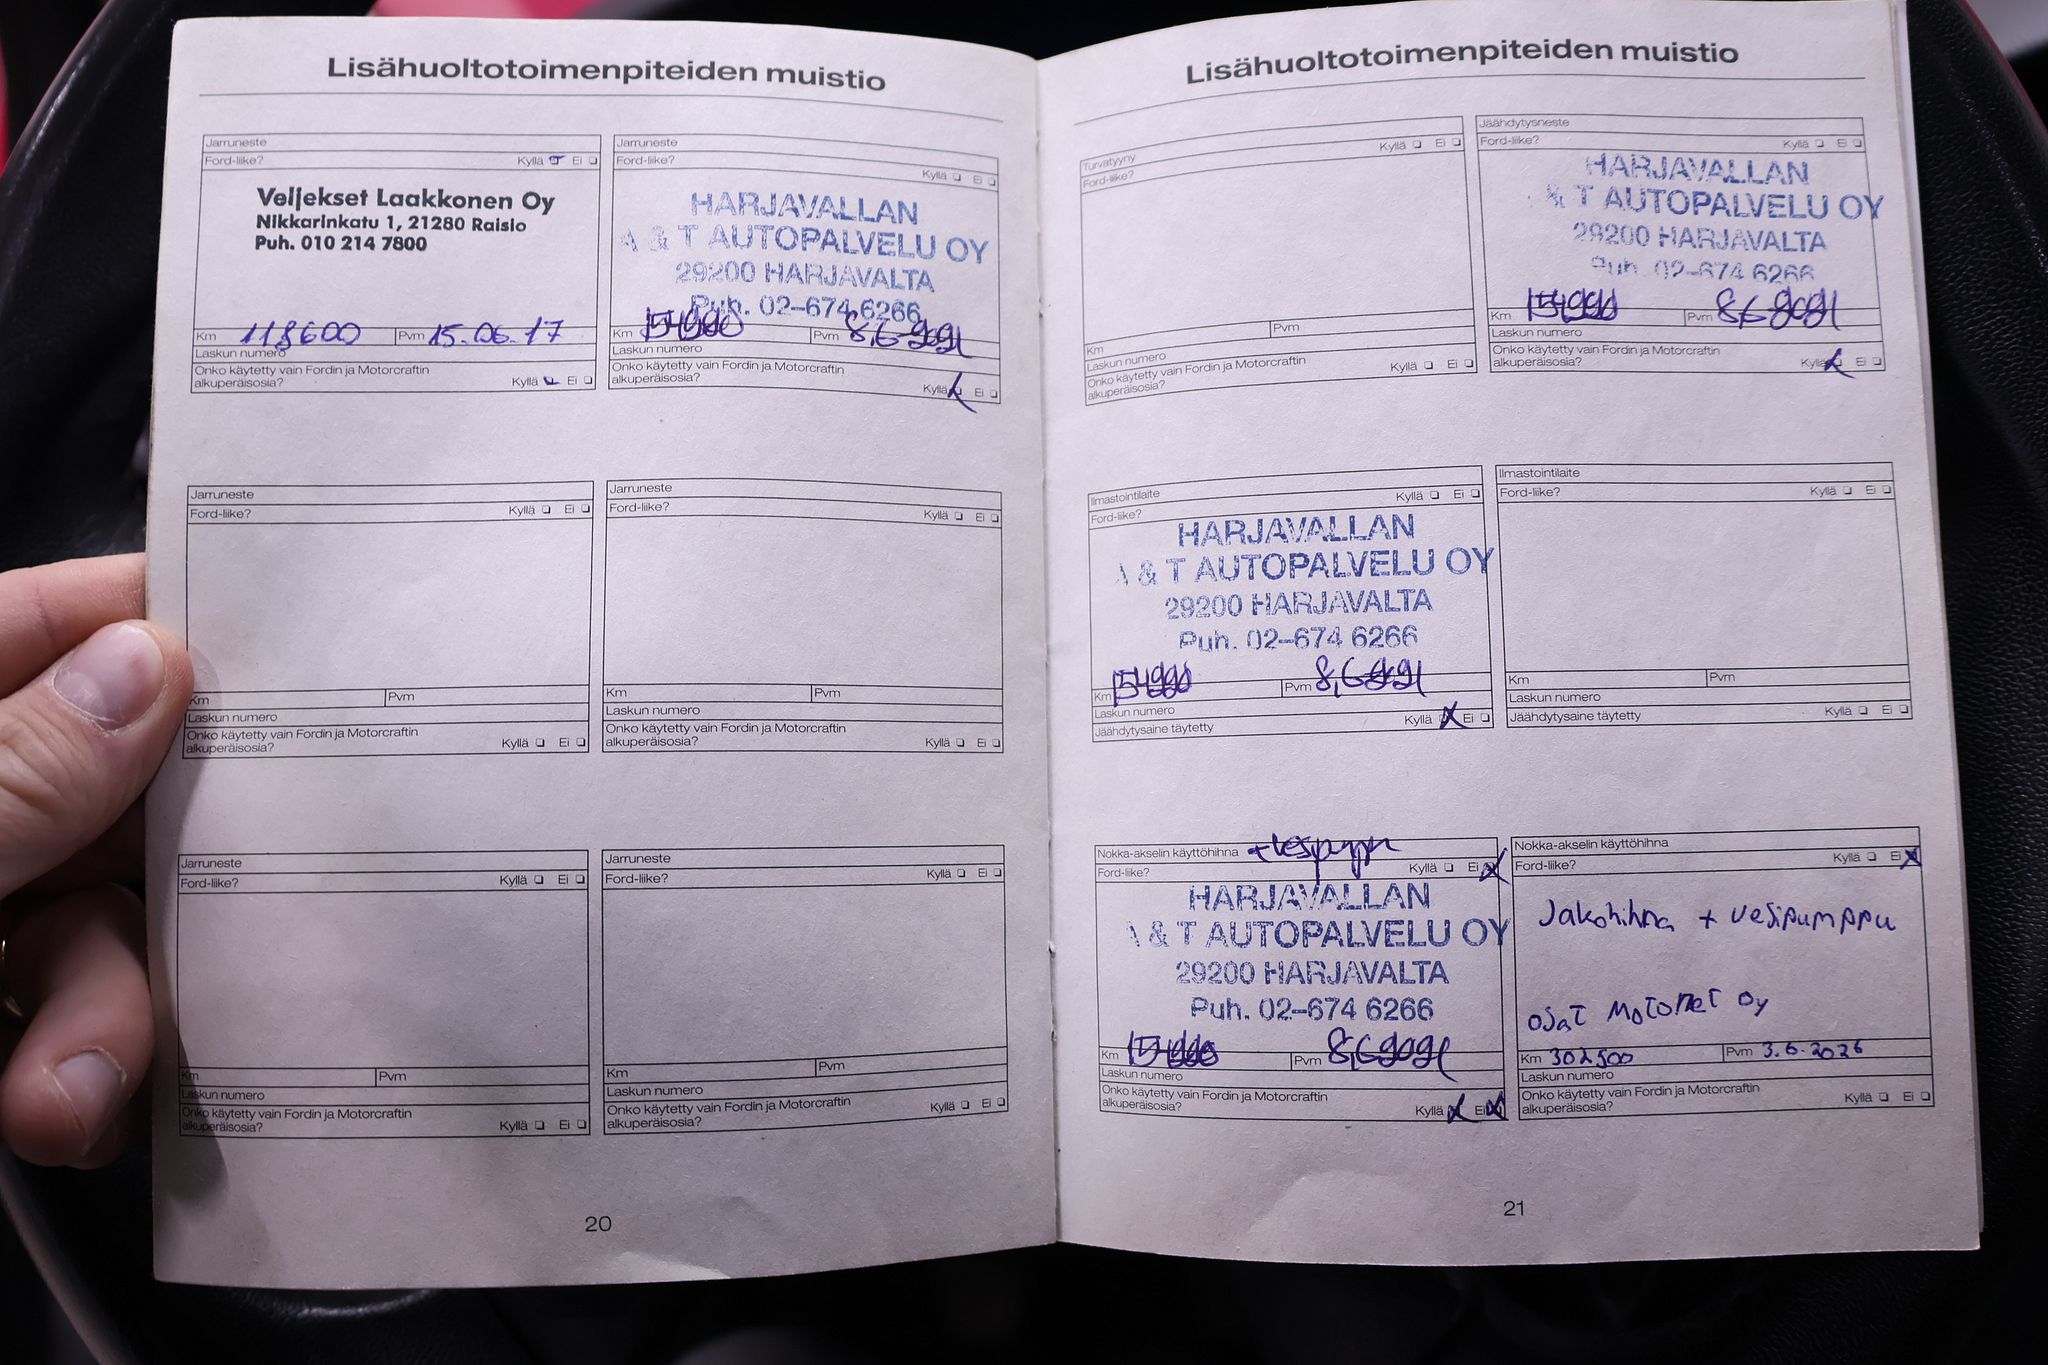 Lisähuoltotoimenpiteiden muistio
Jarruneste
Ford-liike? Kyllä Ei
Veljekset Laakkonen Oy
Nikkarinkatu 1, 21280 Raisio
Puh. 010 214 7800
Km 118600 Pvm 15.06.17
Laskun numero
Onko käytetty vain Fordin ja Motorcraftin
alkuperäisosia? Kyllä Ei
Jarruneste
Ford-liike?
Kyllä Ei
HARJAVALLAN
A & T AUTOPALVELU OY
29200 HARJAVALTA
Puh. 02-674 6266
Km Pvm
Laskun numero
Onko käytetty vain Fordin ja Motorcraftin
alkuperäisosia? Kyllä Ei
Jarruneste
Ford-liike? Kyllä Ei
Km Pvm
Laskun numero
Onko käytetty vain Fordin ja Motorcraftin
alkuperäisosia? Kyllä Ei
Jarruneste
Ford-liike? Kyllä Ei
Km Pvm
Laskun numero
Onko käytetty vain Fordin ja Motorcraftin
alkuperäisosia? Kyllä Ei
Jarruneste
Ford-liike? Kyllä Ei
Km Pvm
Laskun numero
Onko käytetty vain Fordin ja Motorcraftin
alkuperäisosia? Kyllä Ei
Jarruneste
Ford-liike? Kyllä Ei
Km Pvm
Laskun numero
Onko käytetty vain Fordin ja Motorcraftin
alkuperäisosia? Kyllä Ei
20
Lisähuoltotoimenpiteiden muistio
Turvatyyny
Ford-liike? Kyllä Ei
Km Pvm
Laskun numero
Onko käytetty vain Fordin ja Motorcraftin
alkuperäisosia? Kyllä Ei
Jäähdytysneste
Ford-liike? Kyllä Ei
HARJAVALLAN
& T AUTOPALVELU OY
29200 HARJAVALTA
Puh. 02-674 6266
Km Pvm
Laskun numero
Onko käytetty vain Fordin ja Motorcraftin
alkuperäisosia? Kyllä Ei
Ilmastointilaite
Ford-liike? Kyllä Ei
HARJAVALLAN
A & T AUTOPALVELU OY
29200 HARJAVALTA
Puh. 02-674 6266
Km Pvm
Laskun numero
Jäähdytysaine täytetty Kyllä Ei
Ilmastointilaite
Ford-liike? Kyllä Ei
Km Pvm
Laskun numero
Jäähdytysaine täytetty Kyllä Ei
Nokka-akselin käyttöhihna
Ford-liike? Kyllä Ei
HARJAVALLAN
A & T AUTOPALVELU OY
29200 HARJAVALTA
Puh. 02-674 6266
Km Pvm
Laskun numero
Onko käytetty vain Fordin ja Motorcraftin
alkuperäisosia? Kyllä Ei
Nokka-akselin käyttöhihna
Ford-liike? Kyllä Ei
Jakohihna + vesipumppu
osat Motonet Oy
Km 302500 Pvm 3.6.2026
Laskun numero
Onko käytetty vain Fordin ja Motorcraftin
alkuperäisosia? Kyllä Ei
21